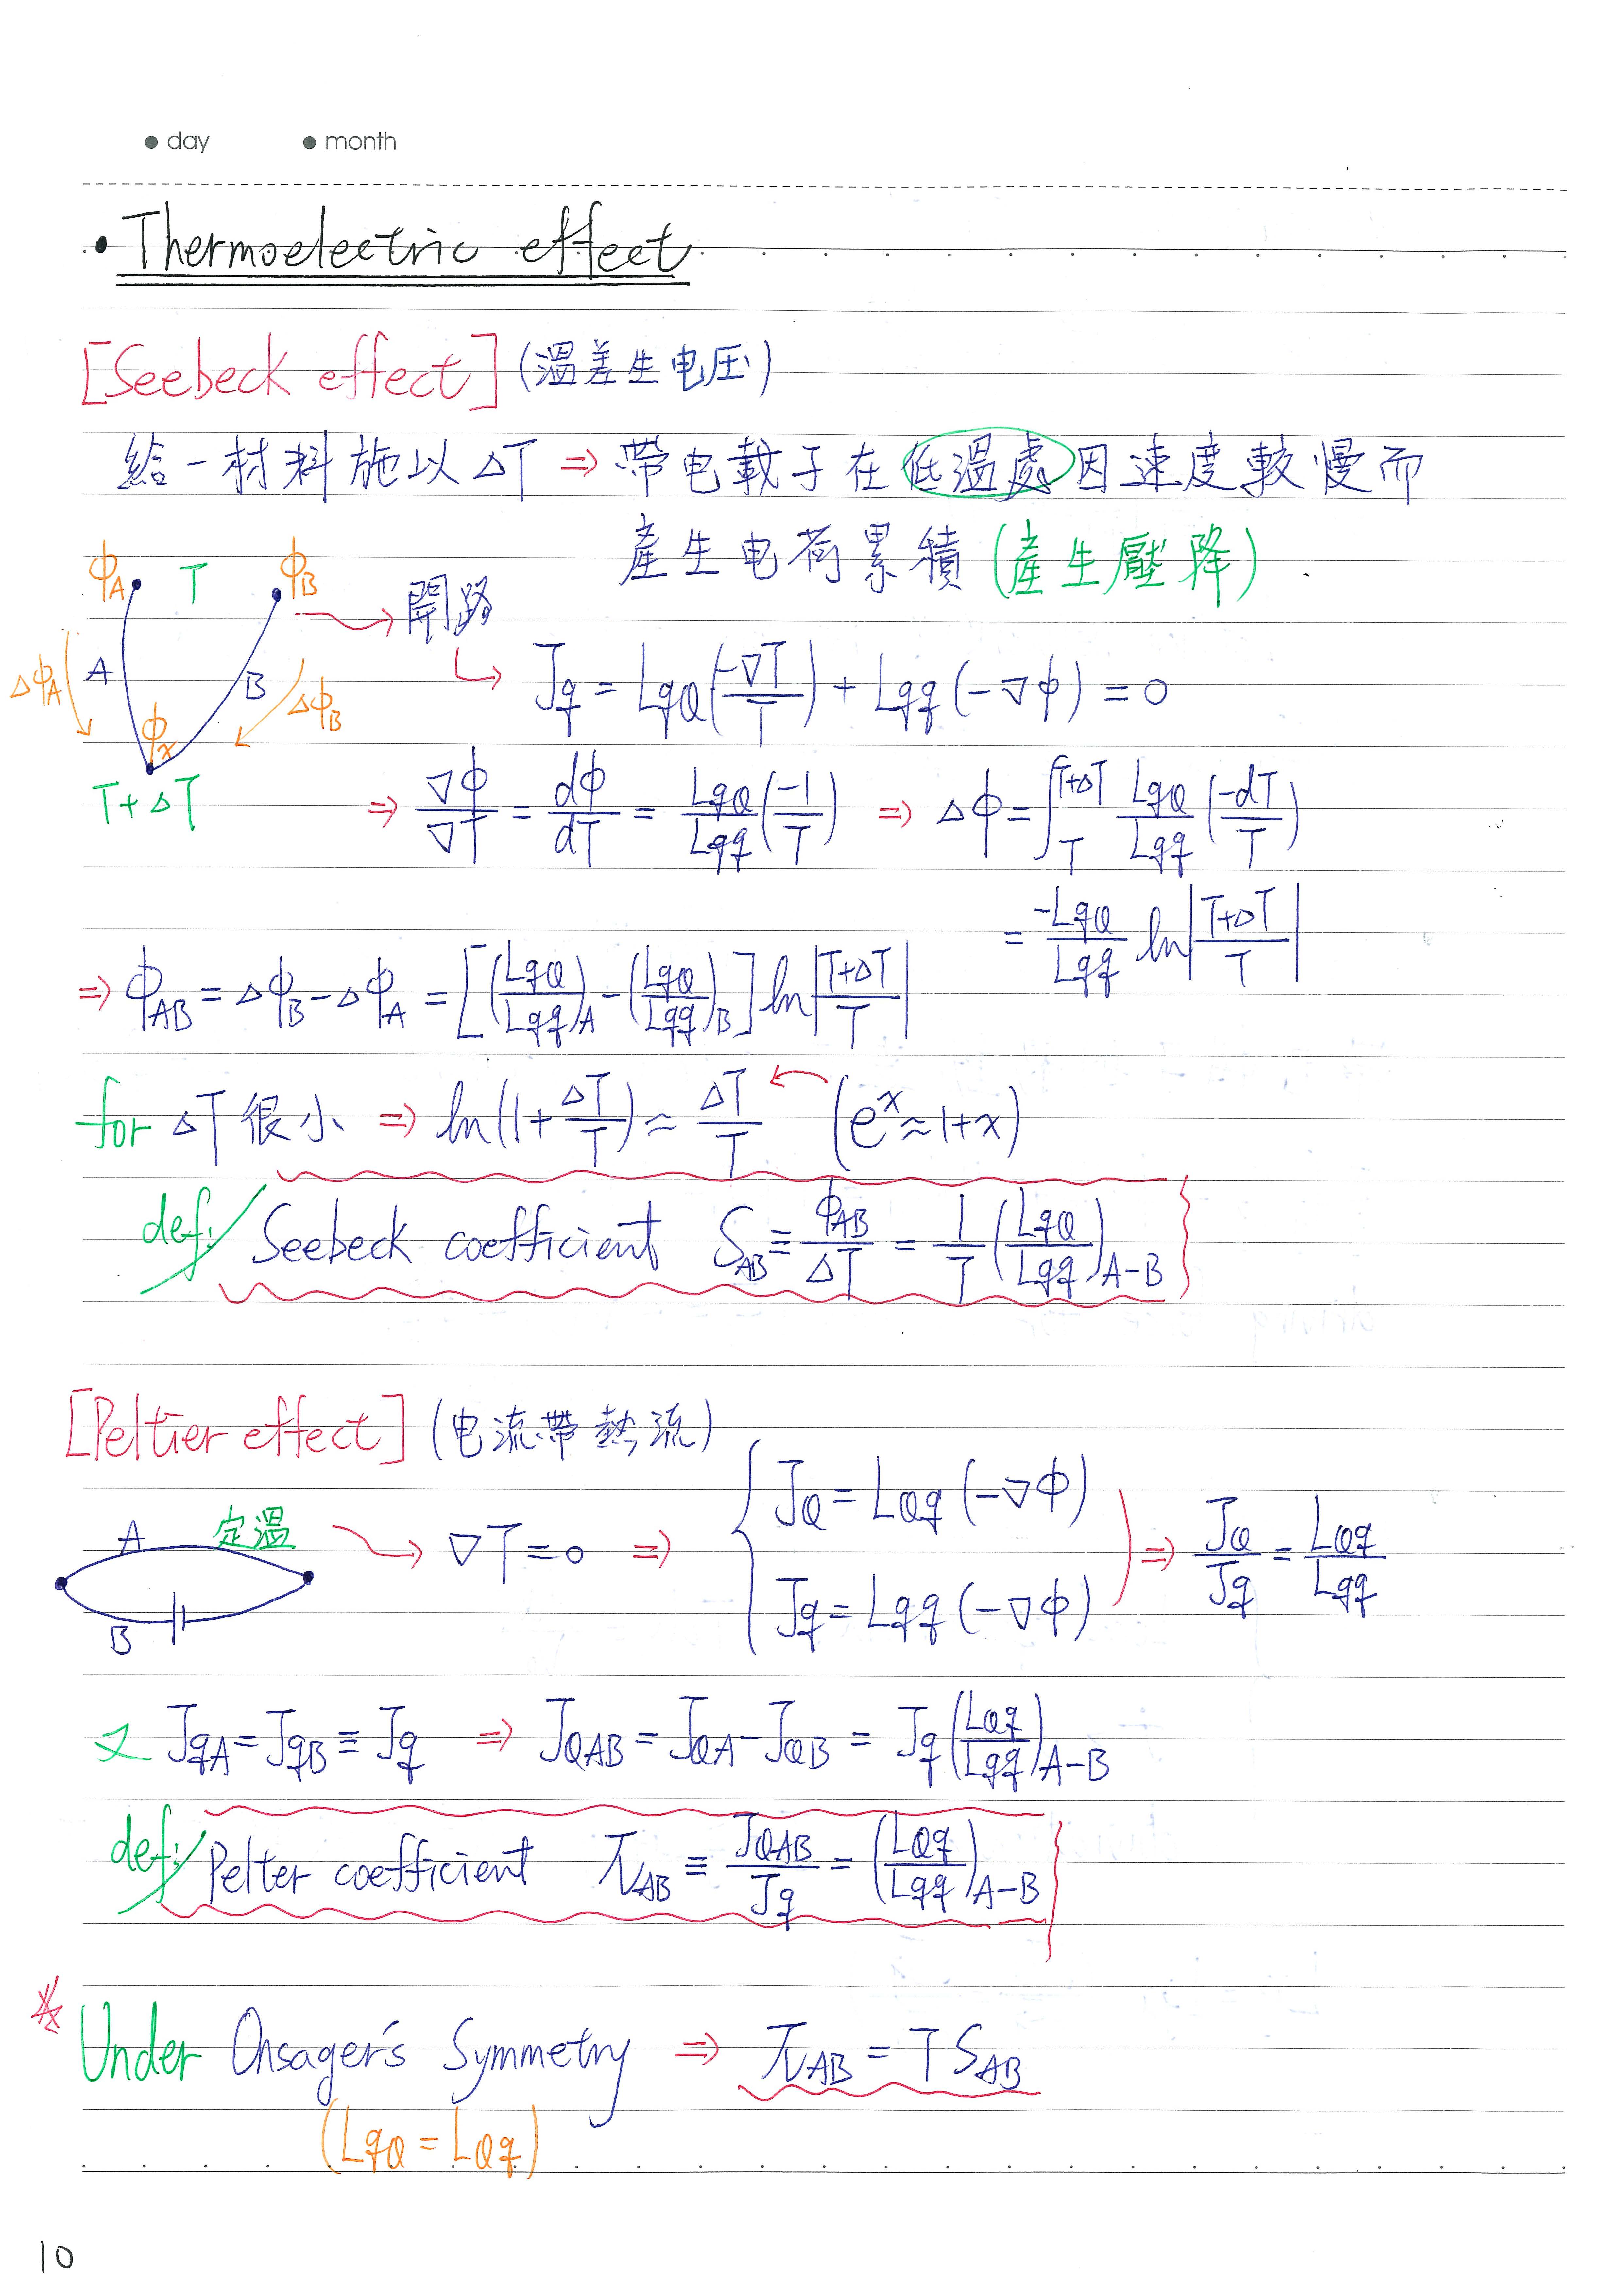 ● day ● month
• Thermoelectric effect
[Seebeck effect] (溫差生电压)
給一材料施以 ΔT ⇒ 帶电載子在低溫處因速度較慢而
產生电荷累積 (產生壓降)
ϕA T ϕB → 開路
ΔϕA A B ΔϕB ϕx
T+ΔT
↳ Jq = LqQ(-∇T/T) + Lqq(-∇ϕ) = 0
⇒ ∇ϕ/∇T = dϕ/dT = LqQ/Lqq (-1/T) ⇒ Δϕ = ∫_T^{T+ΔT} LqQ/Lqq (-dT/T)
= -LqQ/Lqq ln|T+ΔT/T|
⇒ ϕAB = ΔϕB - ΔϕA = [(LqQ/Lqq)A - (LqQ/Lqq)B] ln|T+ΔT/T|
for ΔT 很小 ⇒ ln(1+ΔT/T) ≈ ΔT/T ← (e^x ≈ 1+x)
def: Seebeck coefficient SAB ≡ ϕAB/ΔT = 1/T (LqQ/Lqq)A-B
[Peltier effect] (电流帶熱流)
A 定溫 → ∇T = 0 ⇒ { JQ = LQq (-∇ϕ)
B Jq = Lqq (-∇ϕ) ) ⇒ JQ/Jq = LQq/Lqq
又 JqA = JqB ≡ Jq ⇒ JQAB = JQA - JQB = Jq (LQq/Lqq)A-B
def: Pelter coefficient πAB ≡ JQAB/Jq = (LQq/Lqq)A-B
* Under Onsager's Symmetry ⇒ πAB = T SAB
(LqQ = LQq)
10